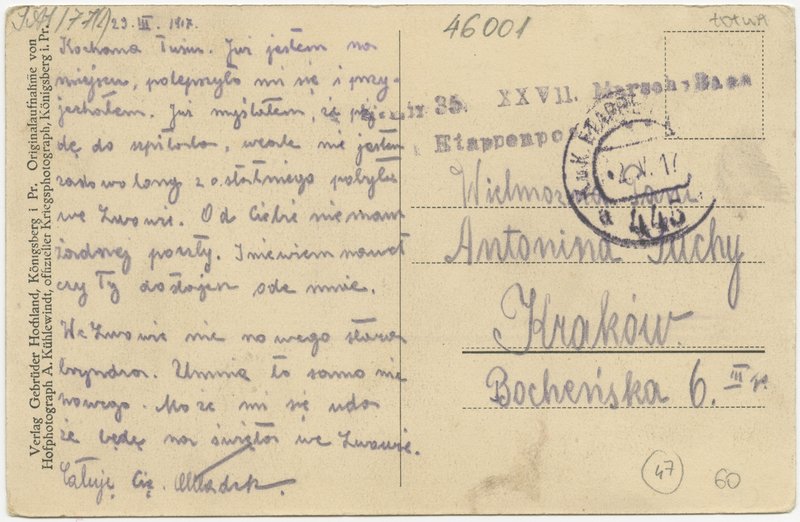 23. III. 1917.
Kochana Tusiu. Już jestem na
miejscu, polepszyło mi się i przy-
jechałem. Już myślałem, że pój-
dę do szpitala, wcale nie jestem
zadowolony z ostatniego pobytu
we Lwowie. Od Ciebie nie mam
żadnej poczty. I nie wiem nawet
czy Ty dostajesz ode mnie.
We Lwowie nic nowego stara
bryndza. U mnie to samo nic
nowego. Może mi się uda
że będę na święta we Lwowie.
Całuję Cię.
46001
35. XXVII. Marsch-Baon
Etappenpo
K.u.K. ETAPPE
a 445
Wielmożna Pani
Antonina Suchy
Kraków.
Bocheńska 6. III p.
47
60
Verlag Gebrüder Hochland, Königsberg i Pr. Originalaufnahme von
Hofphotograph A. Kühlewindt, offizieller Kriegsphotograph, Königsberg i. Pr.